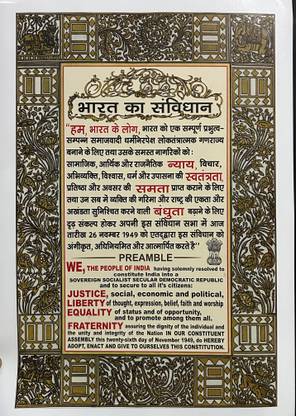 भारत का संविधान
"हम, भारत के लोग, भारत को एक सम्पूर्ण प्रभुत्व-
सम्पन्न समाजवादी धर्मनिरपेक्ष लोकतंत्रात्मक गणराज्य
बनाने के लिए तथा उसके समस्त नागरिको को :
सामाजिक, आर्थिक और राजनैतिक न्याय, विचार,
अभिव्यक्ति, विश्वास, धर्म और उपासना की स्वतंत्रता,
प्रतिष्ठा और अवसर की समता प्राप्त कराने के लिए
तथा उन सब में व्यक्ति की गरिमा और राष्ट्र की एकता और
अखंडता सुनिश्चित करने वाली बंधुता बढ़ाने के लिए
दृढ़ संकल्प होकर अपनी इस संविधान सभा में आज
तारीख 26 नवम्बर 1949 को एतद्द्वारा इस संविधान को
अंगीकृत, अधिनियमित और आत्मार्पित करते है"
PREAMBLE
WE, THE PEOPLE OF INDIA having solemnly resolved to
constitute India into a
SOVEREIGN SOCIALIST SECULAR DEMOCRATIC REPUBLIC
and to secure to all it's citizens:
JUSTICE, social, economic and political,
LIBERTY of thought, expression, belief, faith and worship
EQUALITY of status and of opportunity,
and to promote among them all,
FRATERNITY assuring the dignity of the individual and
the unity and integrity of the Nation IN OUR CONSTITUENT
ASSEMBLY this twenty-sixth day of November 1949, do HEREBY
ADOPT, ENACT AND GIVE TO OURSELVES THIS CONSTITUTION.